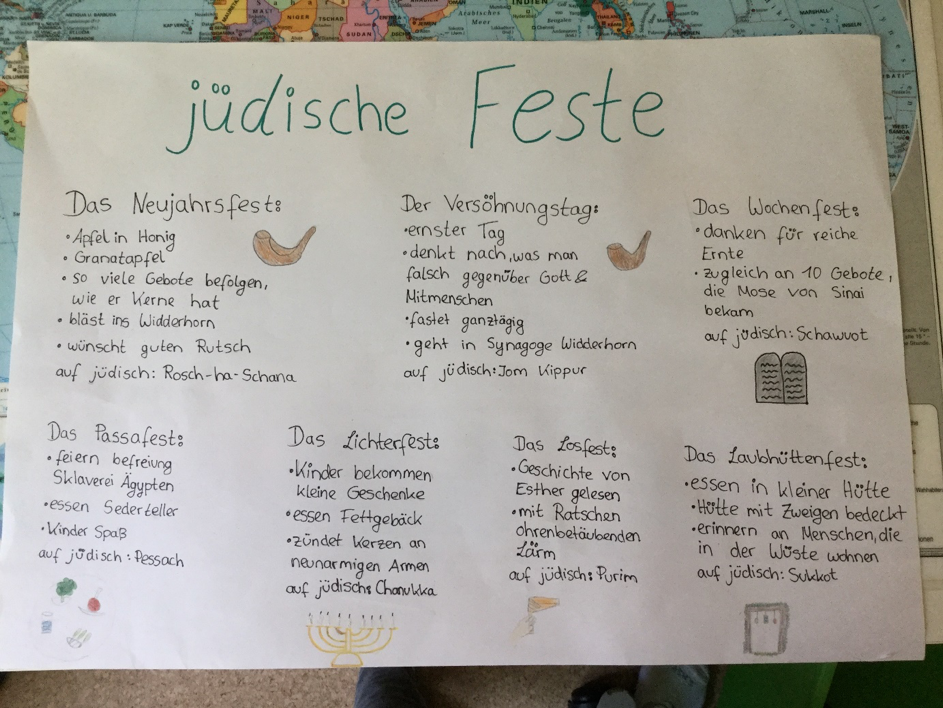 MALI
NIGER
TSCHAD
SUDAN
JEMEN
Arabisches
Meer
INDIEN
jüdische Feste
Das Neujahrsfest:
• Apfel in Honig
• Granatapfel
• so viele Gebote befolgen,
wie er Kerne hat
• bläst ins Widderhorn
• wünscht guten Rutsch
auf jüdisch: Rosch-ha-Schana
Der Versöhnungstag:
•ernster Tag
•denkt nach, was man
falsch gegenüber Gott &
Mitmenschen
•fastet ganztägig
•geht in Synagoge Widderhorn
auf jüdisch: Jom Kippur
Das Wochenfest:
• danken für reiche
Ernte
• zugleich an 10 Gebote,
die Mose von Sinai
bekam
auf jüdisch: Schawuot
Das Passafest:
• feiern befreiung
Sklaverei Ägypten
•essen Sederteller
•Kinder Spaß
auf jüdisch: Pessach
Das Lichterfest:
•Kinder bekommen
kleine Geschenke
•essen Fettgebäck
•zündet Kerzen an
neunarmigen Armen
auf jüdisch: Chanukka
Das Losfest:
•Geschichte von
Esther gelesen
•mit Ratschen
ohrenbetäubenden
Lärm
auf jüdisch: Purim
Das Laubhüttenfest:
•essen in kleiner Hütte
•Hütte mit Zweigen bedeckt
•erinnern an Menschen, die
in der Wüste wohnen
auf jüdisch: Sukkot